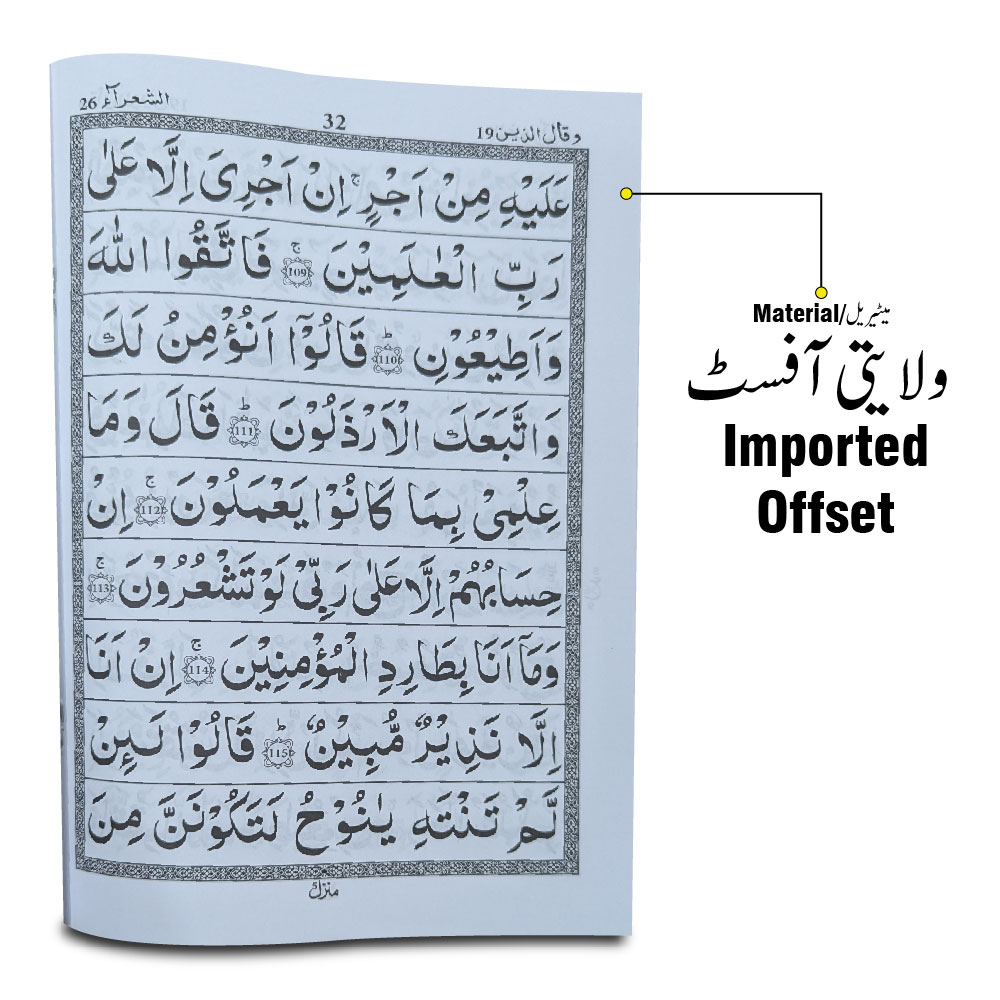 الشعرآء 26
32
وقال الذین 19
عَلَیْهِ مِنْ اَجْرٍ ۚ اِنْ اَجْرِیَ اِلَّا عَلٰی
رَبِّ الْعٰلَمِیْنَ ۚ 109 فَاتَّقُوا اللّٰهَ
وَاَطِیْعُوْنِ ؕ 110 قَالُوْۤا اَنُؤْمِنُ لَكَ
وَاتَّبَعَكَ الْاَرْذَلُوْنَ ؕ 111 قَالَ وَمَا
عِلْمِیْ بِمَا كَانُوْا یَعْمَلُوْنَ ۚ 112 اِنْ
حِسَابُهُمْ اِلَّا عَلٰی رَبِّیْ لَوْ تَشْعُرُوْنَ ۚ 113
وَمَاۤ اَنَا بِطَارِدِ الْمُؤْمِنِیْنَ ۚ 114 اِنْ اَنَا
اِلَّا نَذِیْرٌ مُّبِیْنٌ ؕ 115 قَالُوْا لَىِٕنْ
لَّمْ تَنْتَهِ یٰنُوْحُ لَتَكُوْنَنَّ مِنَ
Material/میٹیریل
ولایتی آفسٹ
Imported
Offset